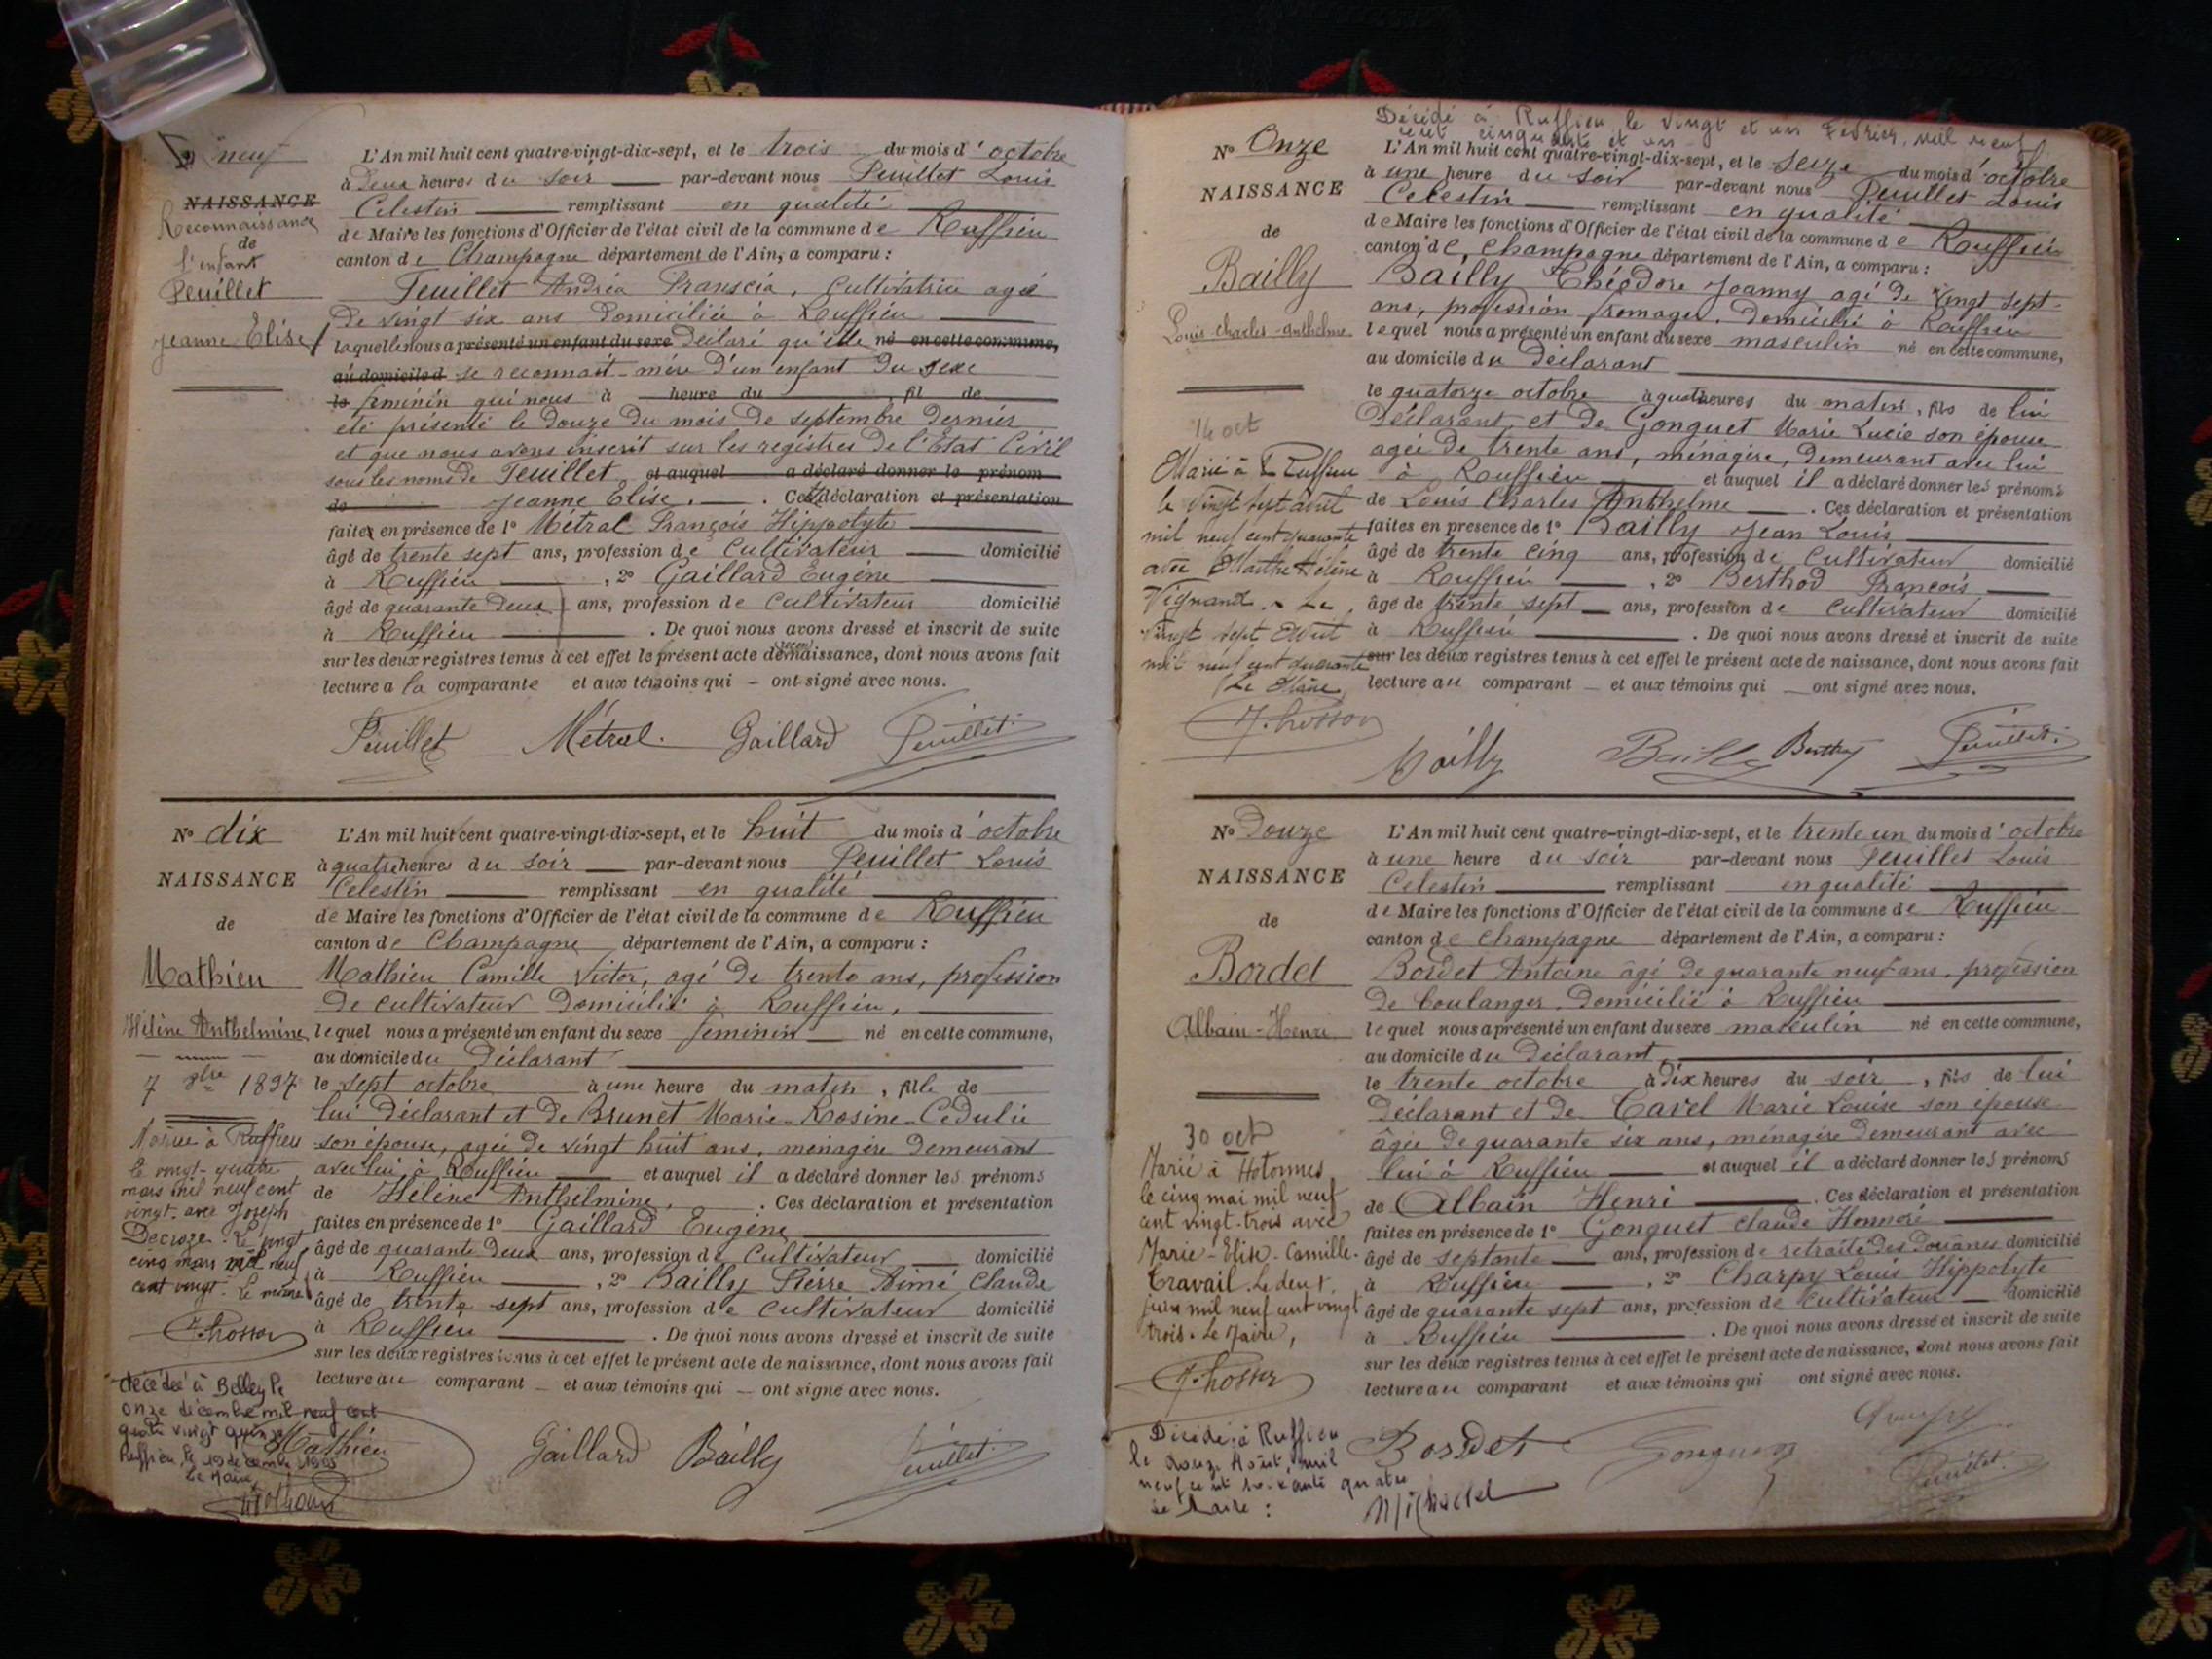 neuf
NAISSANCE
Reconnaissance
de
l'enfant
Peuillet
Jeanne Elise
L'An mil huit cent quatre-vingt-dix-sept, et le trois du mois d'octobre
à deux heures du soir par-devant nous Peuillet Louis
Celestin remplissant en qualité
de Maire les fonctions d'Officier de l'état civil de la commune de Ruffieu
canton de Champagne département de l'Ain, a comparu :
Peuillet Andréa Franscia, cultivatrice agé
de vingt six ans domiciliée à Ruffieu
laquelle nous a présenté un enfant du sexe déclaré qu'elle né en cette commune,
au domicile d se reconnait mère d'un enfant du sexe
le féminin qui nous à heure du fil de
été présenté le douze du mois de septembre dernier
et que nous avons inscrit sur les registres de l'Etat Civil
sous les noms de Peuillet et auquel a déclaré donner le prénom
de Jeanne Elise. Cette déclaration et présentation
faites en présence de 1º Métral François Hippolyte
âgé de trente sept ans, profession de cultivateur domicilié
à Ruffieu , 2º Gaillard Eugène
âgé de quarante deux ans, profession de cultivateur domicilié
à Ruffieu . De quoi nous avons dressé et inscrit de suite
sur les deux registres tenus à cet effet le présent acte de naissance, dont nous avons fait
lecture a la comparante et aux témoins qui ont signé avec nous.
Peuillet Métral Gaillard Peuillet
Nº dix
NAISSANCE
de
Mathieu
Hélène Anthelmine
7 8bre 1897
Mariée à Ruffieu
le vingt-quatre
mars mil neuf cent
vingt avec Joseph
Decroze. Le vingt
cinq mars mil neuf
cent vingt. Le maire
décédée à Belley le
onze décembre mil neuf cent
quatre vingt quinze
Ruffieu, le 19 décembre 1995
Le Maire
L'An mil huit cent quatre-vingt-dix-sept, et le huit du mois d'octobre
à quatre heures du soir par-devant nous Peuillet Louis
Celestin remplissant en qualité
de Maire les fonctions d'Officier de l'état civil de la commune de Ruffieu
canton de Champagne département de l'Ain, a comparu :
Mathieu Camille Victor, agé de trente ans, profession
de cultivateur domicilié à Ruffieu,
lequel nous a présenté un enfant du sexe féminin né en cette commune,
au domicile du déclarant
le sept octobre à une heure du matin, fille de
lui déclarant et de Brunet Marie-Rosine-Cedulie
son épouse, agée de vingt huit ans, ménagère demeurant
avec lui, à Ruffieu et auquel il a déclaré donner les prénoms
de Hélène Anthelmine, . Ces déclaration et présentation
faites en présence de 1º Gaillard Eugène
âgé de quarante deux ans, profession de cultivateur domicilié
à Ruffieu , 2º Bailly Pierre Aimé Claude
âgé de trente sept ans, profession de cultivateur domicilié
à Ruffieu . De quoi nous avons dressé et inscrit de suite
sur les deux registres tenus à cet effet le présent acte de naissance, dont nous avons fait
lecture au comparant et aux témoins qui ont signé avec nous.
Mathieu Gaillard Bailly Peuillet
Décédé à Ruffieu le vingt et un Février, mil neuf
cent cinquante et un
Nº Onze
NAISSANCE
de
Bailly
Louis-Charles-Anthelme
14 oct
Marié à Ruffieu
le vingt sept avril
mil neuf cent quarante
avec Marthe Hélène
Vignand. Le
vingt sept Avril
mil neuf cent quarante
Le Maire,
L'An mil huit cent quatre-vingt-dix-sept, et le seize du mois d'octobre
à une heure du soir par-devant nous Peuillet Louis
Celestin remplissant en qualité
de Maire les fonctions d'Officier de l'état civil de la commune de Ruffieu
canton de Champagne département de l'Ain, a comparu :
Bailly Théodore Joanny agé de vingt sept
ans, profession fromager, domicilié à Ruffieu
lequel nous a présenté un enfant du sexe masculin né en cette commune,
au domicile du déclarant
le quatorze octobre à quatre heures du matin, fils de lui
déclarant, et de Gonguet Marie Lucie son épouse
agée de trente ans, ménagère, demeurant avec lui
à Ruffieu et auquel il a déclaré donner les prénoms
de Louis Charles Anthelme . Ces déclaration et présentation
faites en présence de 1º Bailly Jean Louis
âgé de trente cinq ans, profession de cultivateur domicilié
à Ruffieu , 2º Berthod François
âgé de trente sept ans, profession de cultivateur domicilié
à Ruffieu . De quoi nous avons dressé et inscrit de suite
sur les deux registres tenus à cet effet le présent acte de naissance, dont nous avons fait
lecture au comparant et aux témoins qui ont signé avec nous.
Bailly Bailly Berthod Peuillet
Nº Douze
NAISSANCE
de
Bordet
Albain-Henri
30 oct
Marié à Hotonnes
le cinq mai mil neuf
cent vingt-trois avec
Marie-Elise-Camille
Travail. Le deux
juin mil neuf cent vingt
trois. Le Maire,
Décédé à Ruffieu
le douze Août, mil
neuf cent soixante quatre
Le Maire :
L'An mil huit cent quatre-vingt-dix-sept, et le trente un du mois d'octobre
à une heure du soir par-devant nous Peuillet Louis
Celestin remplissant en qualité
de Maire les fonctions d'Officier de l'état civil de la commune de Ruffieu
canton de Champagne département de l'Ain, a comparu :
Bordet Antoine âgé de quarante neuf ans, profession
de boulanger, domicilié à Ruffieu
lequel nous a présenté un enfant du sexe masculin né en cette commune,
au domicile du déclarant
le trente octobre à dix heures du soir, fils de lui
déclarant et de Cavel Marie Louise son épouse
âgée de quarante six ans, ménagère demeurant avec
lui à Ruffieu et auquel il a déclaré donner les prénoms
de Albain Henri . Ces déclaration et présentation
faites en présence de 1º Gonguet Claude Honnoré
âgé de septante ans, profession de retraité des douanes domicilié
à Ruffieu , 2º Charpy Louis Hippolyte
âgé de quarante sept ans, profession de cultivateur domicilié
à Ruffieu . De quoi nous avons dressé et inscrit de suite
sur les deux registres tenus à cet effet le présent acte de naissance, dont nous avons fait
lecture au comparant et aux témoins qui ont signé avec nous.
Bordet Gonguet Peuillet